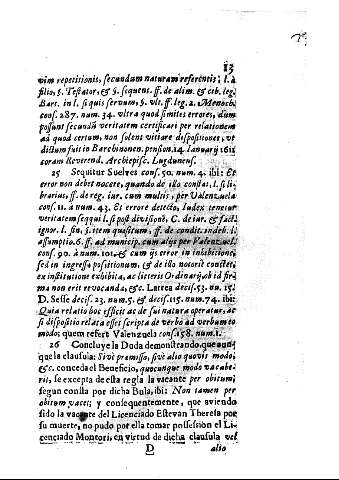 13
vim repetitionis, secundum naturam referentis; l. à
filio, §. Testator, & §. sequent. ff. de alim. & cib. leg.
Bart. in l. si quis servum, §. ult. ff. leg. 2. Menoch.
cons. 287. num. 34. ultra quod similes errores, dum
possunt secundũ veritatem certificari per relationem
ad quod certum, non solent vitiare dispositiones, ut
dictum fuit in Barchinonen. pension. 14. Ianuarij 1611
coram Reverend. Archiepisc. Lugdunens.
25 Sequitur Suelves cons. 50. num. 4. ibi: Et
error non debet nocere, quando de illo constat, l. si li-
brarius, ff. de reg. iur. cum multis, per Valenzuela
cons. 11. a num. 43. Et errore detecto, Iudex tenetur
veritatem sequi l. si post divisionẽ, C. de iur. & fact.
ignor. l. fin. §. item quæsitum, ff. de condit. indeb. l.
assumptio 6. ff. ad municip. cum alijs per Valenzuel.
cons. 90. à num. 101. & cum ijs error in inhibitione,
sed in ingressu possitionum, & de illo notoriè constet,
ex institutione exhibita, ac litteris Ordinarij ob id fir-
ma non erit revocanda, &c. Larrea decis. 53. nu. 15.
D. Sesse decis. 23. num. 5. & decis. 115. num. 74. ibi:
Quia relatio hoc efficit ac de sui natura operatur, ac
si dispositio relata esset scripta de verbo ad verbum eo
modo; quem refert Valenzuela cons. 158. num. 1.
26 Concluye la Duda demonstrando, que aunq
que la clausula: Sivè præmisso, sivè alio quovis modo,
&c. conceda el Beneficio, quocunque modo vacabe-
rit, se excepta de esta regla la vacante per obitum;
segun consta por dicha Bula, ibi: Non tamen per
obitum vacet; y consequentemente, que aviendo
sido la vacante del Licenciado Estevan Theresa por
su muerte, no pudo por ella tomar possession el Li-
cenciado Montori, en virtud de dicha clausula vel
D alio